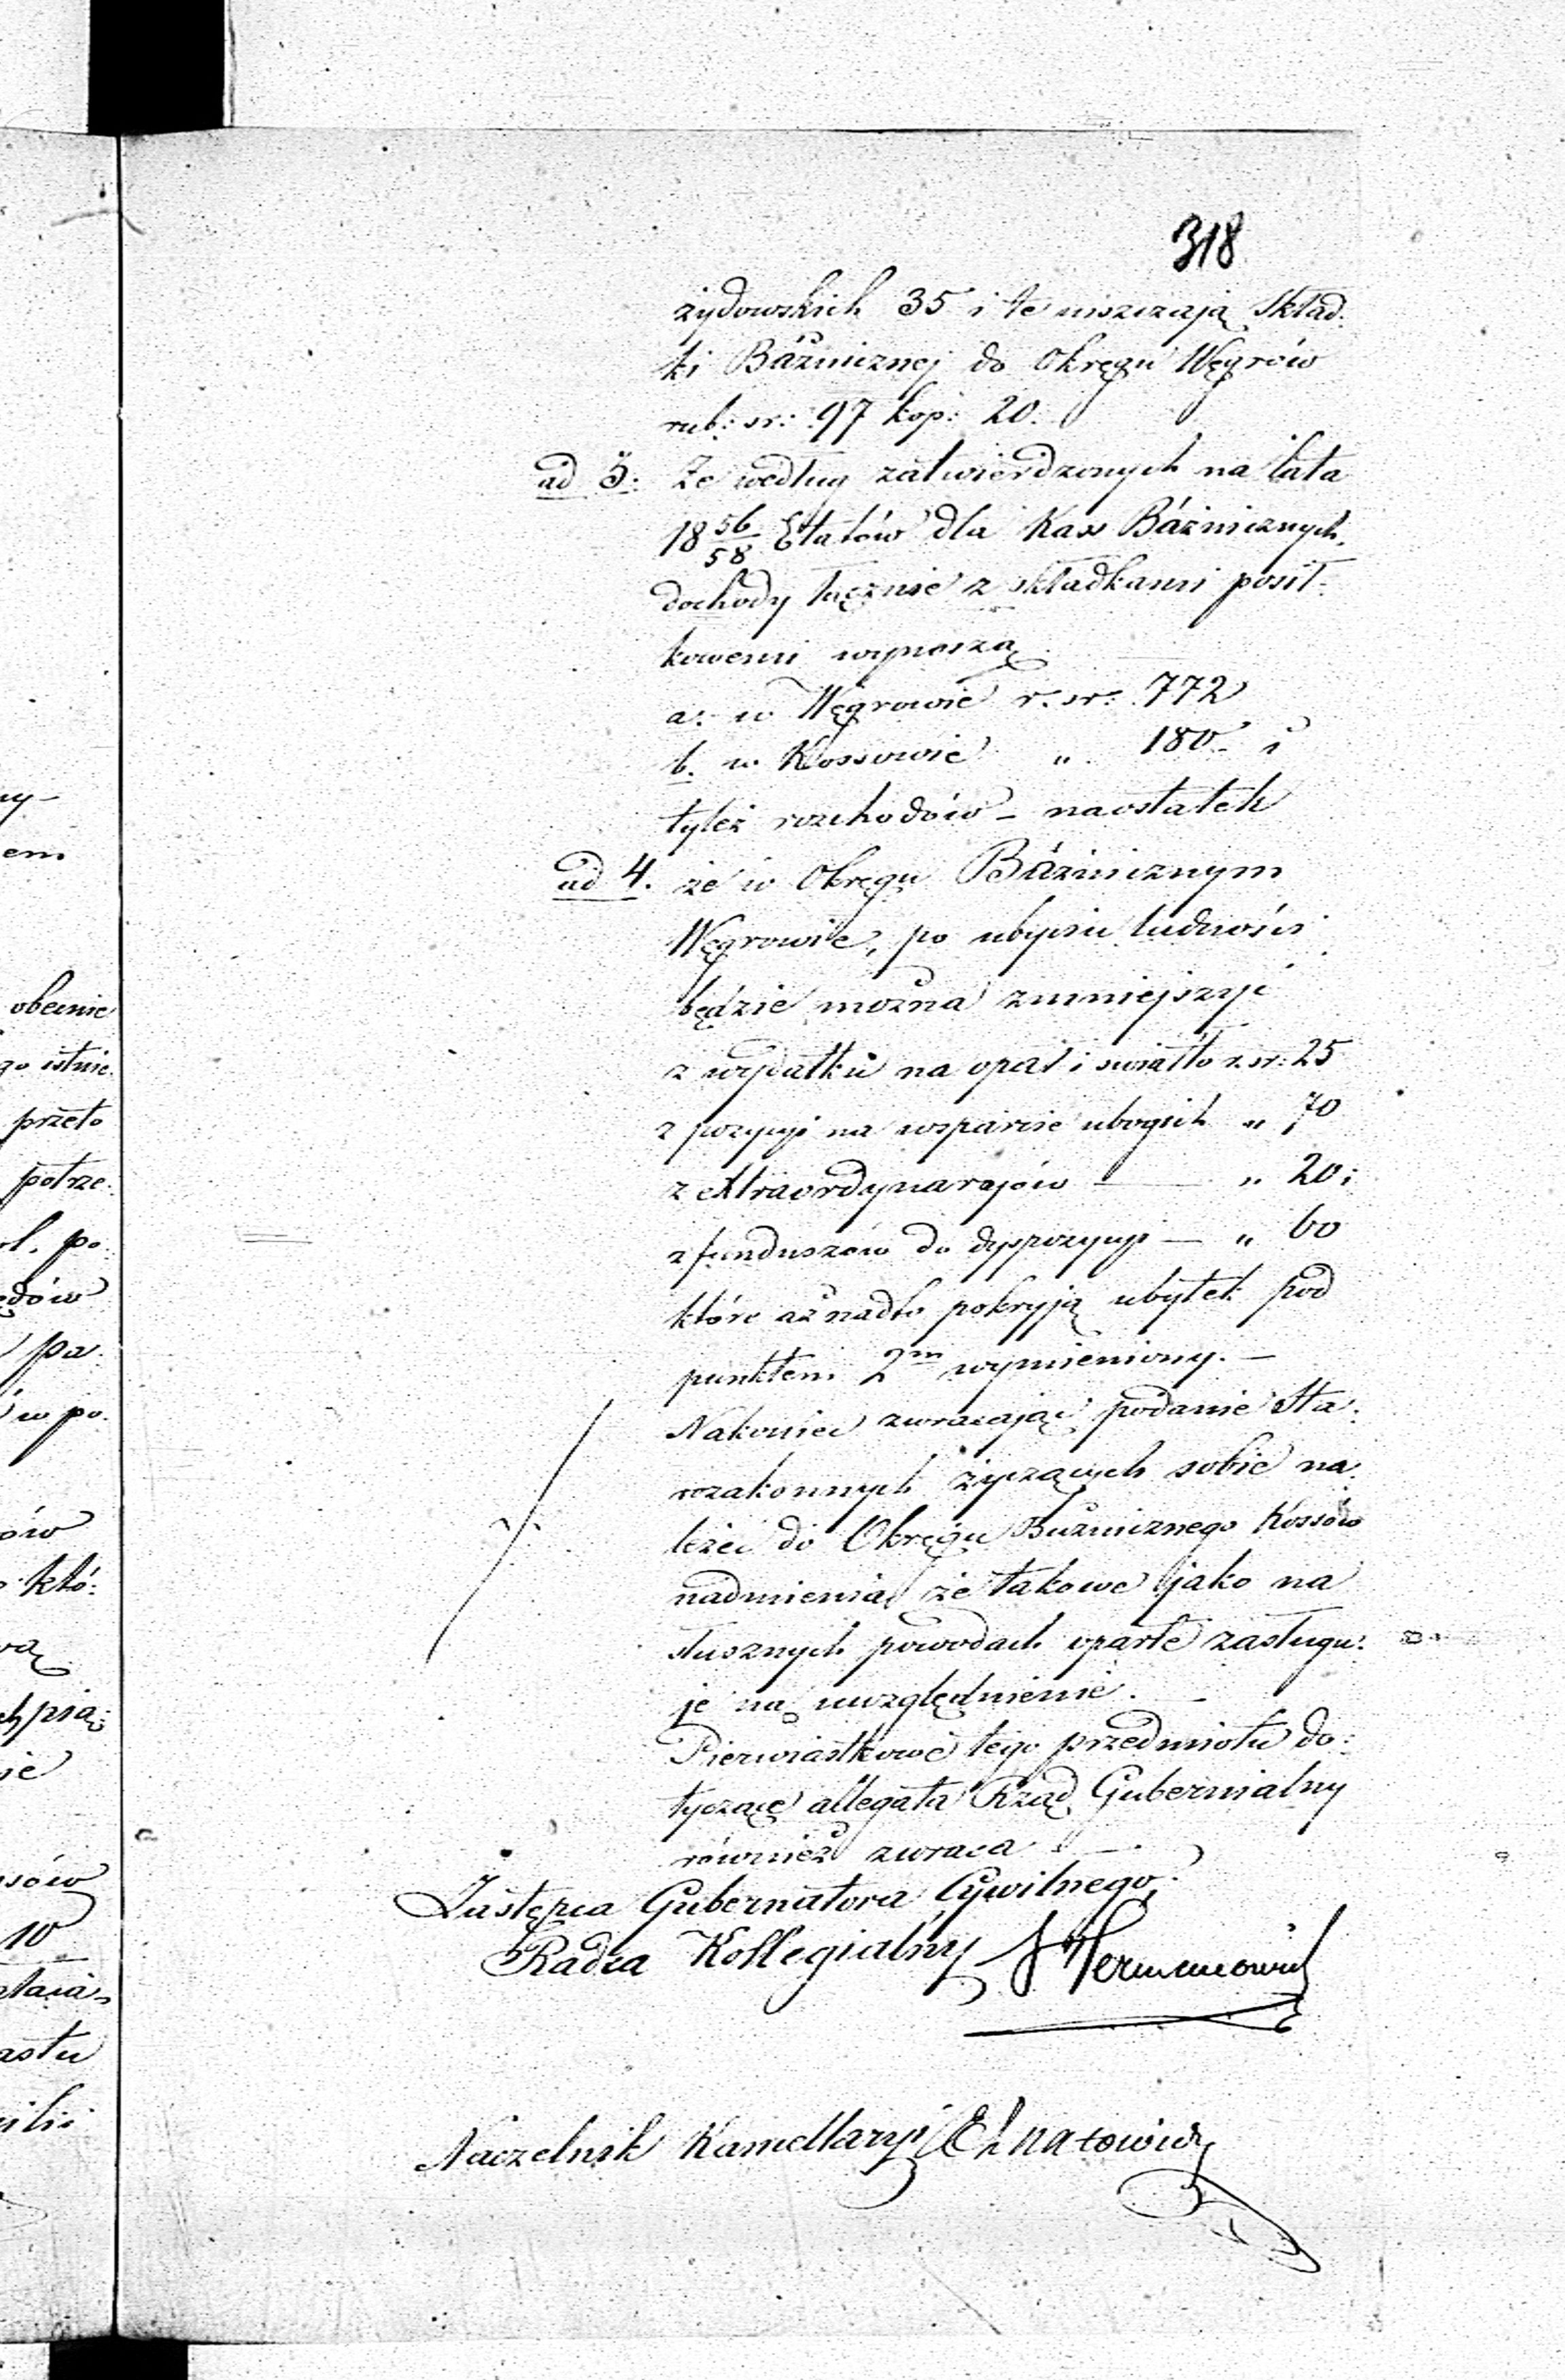 318
żydowskich 35 i te uiszczają skład:
ki Bóżnicznej do Okręgu Węgrów
rub: sr: 97 kop: 20.
ad 3: Że według zatwierdzonych na lata
18 56/58 Etatów dla Kass Bóżnicznych.
dochody łącznie z składkami posił-
kowemi wynoszą
a: w Węgrowie r. sr: 772
b. w Kossowie „ 180 i
tyleż rozchodów – naostatek
ad 4. że w Okręgu Bóżnicznym
Węgrowie, po ubyciu ludności
będzie można zmniejszyć
z wydatku na opał i światło r. sr: 25
z pozycji na wsparcie ubogich „ 70
z extraordynaryjów — „ 20;
z funduszów do dyspozycji — „ 60
które aż nadto pokryją ubytek pod
punktem 2m wymieniony. –
Nakoniec zwracając podanie Sta:
rozakonnych życzących sobie na:
leżeć do Okręgu Bóżnicznego Kossów
nadmienia że takowe jako na
słusznych powodach oparte zasługu:
je na uwzględnienie. –
Pierwiastkowe tego przedmiotu do:
tyczące allegata Rząd Gubernialny
również zwraca. –
Zastępca Gubernatora Cywilnego,
Radca Kollegialny
Naczelnik Kancellaryi
obecnie
go istnie:
przeto
potrze:
l. po:
pa:
w po:
ów
któ:
10
astu